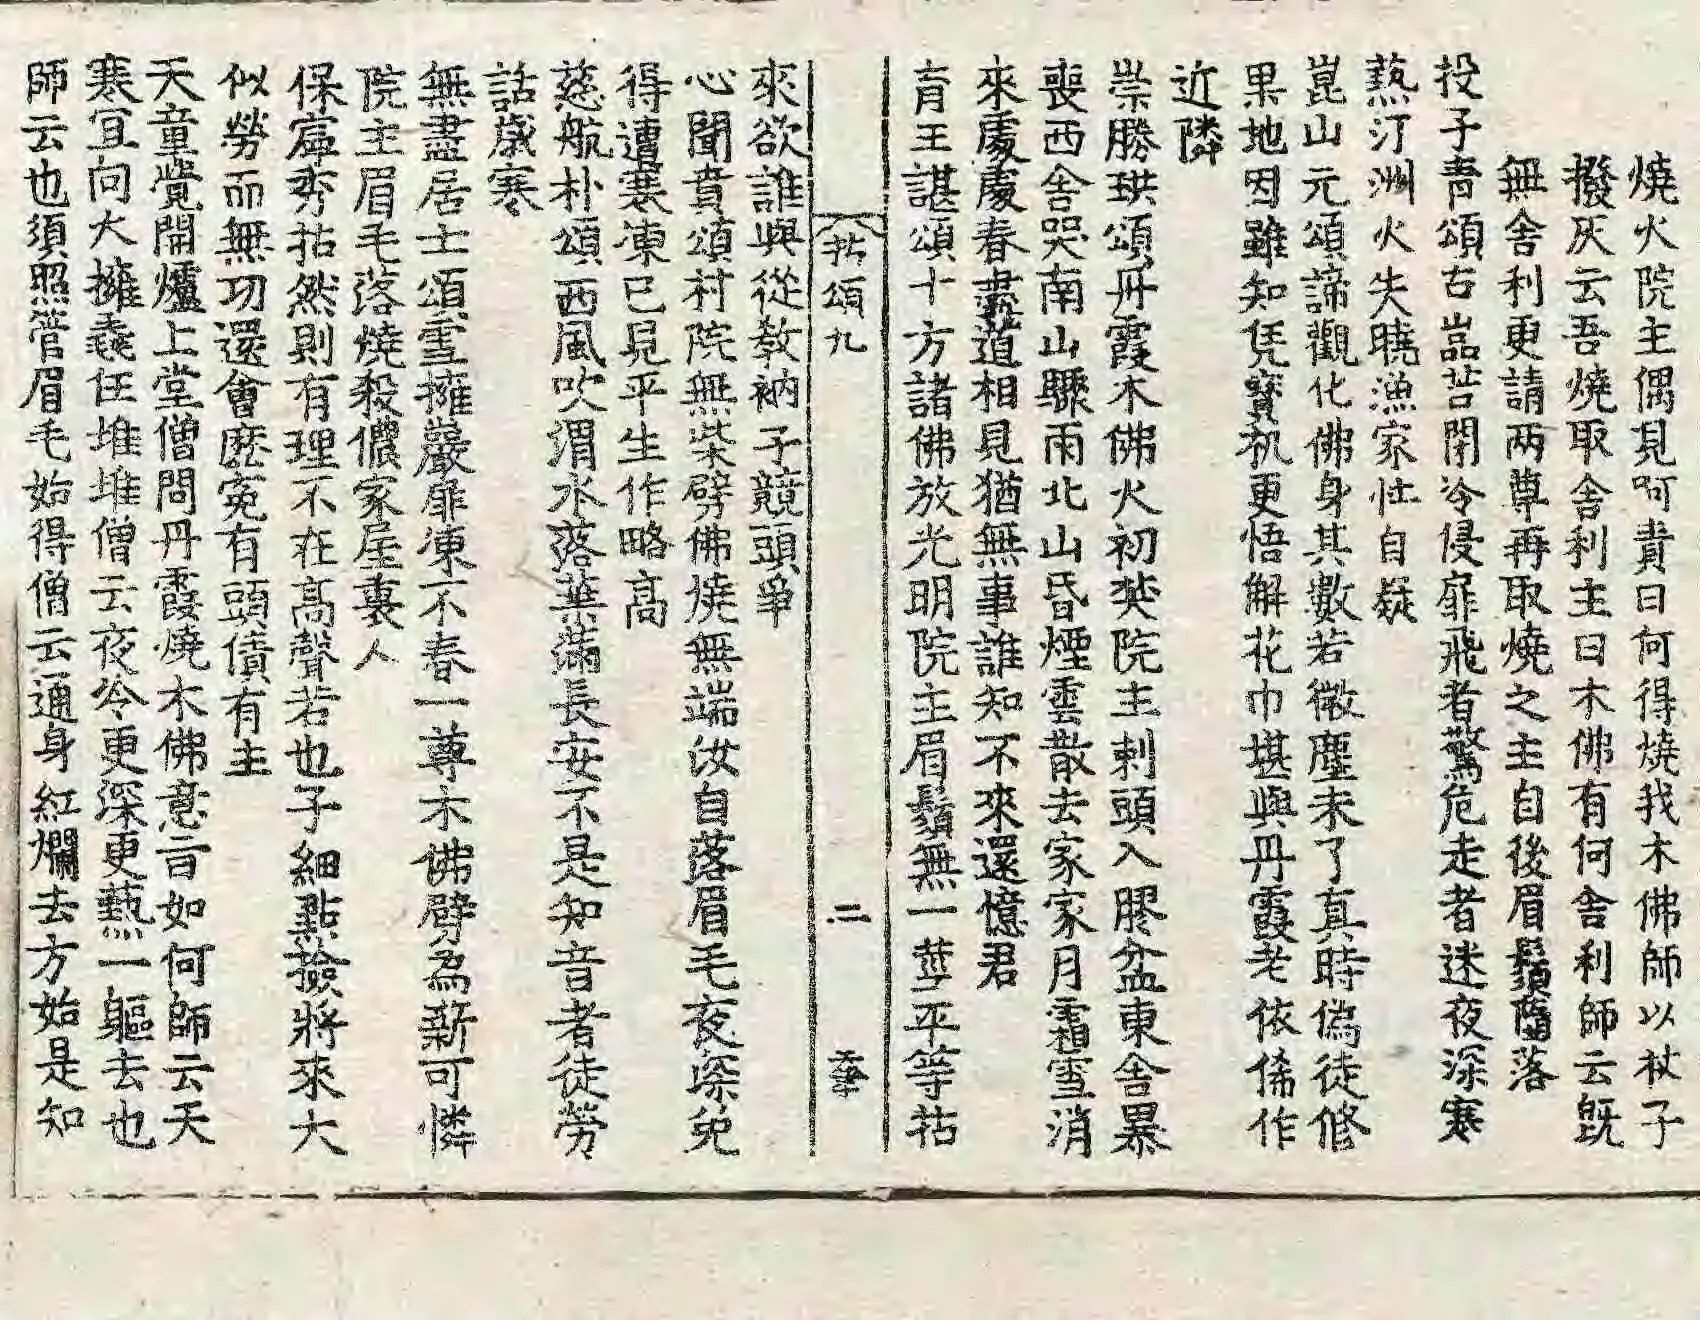 燒火院主偶見呵責曰何得燒我木佛師以杖子
撥灰云吾燒取舍利主曰木佛有何舍利師云旣
無舍利更請两尊再取燒之主自後眉鬚墮落
投子青頌古嵓苔閉冷侵扉飛者驚危走者迷夜深寒
爇汀洲火失曉漁家忙自疑
崑山元頌諦觀化佛身其數若微塵未了真時偽徒修
果地因雖知凭寳机更悟解花巾堪與丹霞老依俙作
近隣
崇勝珙頌丹霞木佛火初焚院主刺頭入膠盆東舍暴
喪西舍哭南山驟雨北山昏煙雲散去家家月霜雪消
來處處春盡道相見猶無事誰知不來還憶君
育王諶頌十方諸佛放光明院主眉鬚無一莖平等拈
拈頌九
二
來欲誰與從教衲子競頭爭
心聞賁頌村院無柴劈佛燒無端汝自落眉毛夜深免
得遭寒凍已見平生作略高
慈航朴頌西風吹渭水落葉滿長安不是知音者徒勞
話歲寒
無盡居士頌雪擁巖扉凍不春一尊木佛劈為薪可憐
院主眉毛落燒殺儂家屋裏人
保寧秀拈然則有理不在高聲若也子細點撿將來大
似勞而無功還會麽寃有頭債有主
天童覺開爐上堂僧問丹霞燒木佛意旨如何師云天
寒宜向大擁毳任堆堆僧云夜冷更深更爇一軀去也
師云也須照管眉毛始得僧云通身紅爛去方始是知